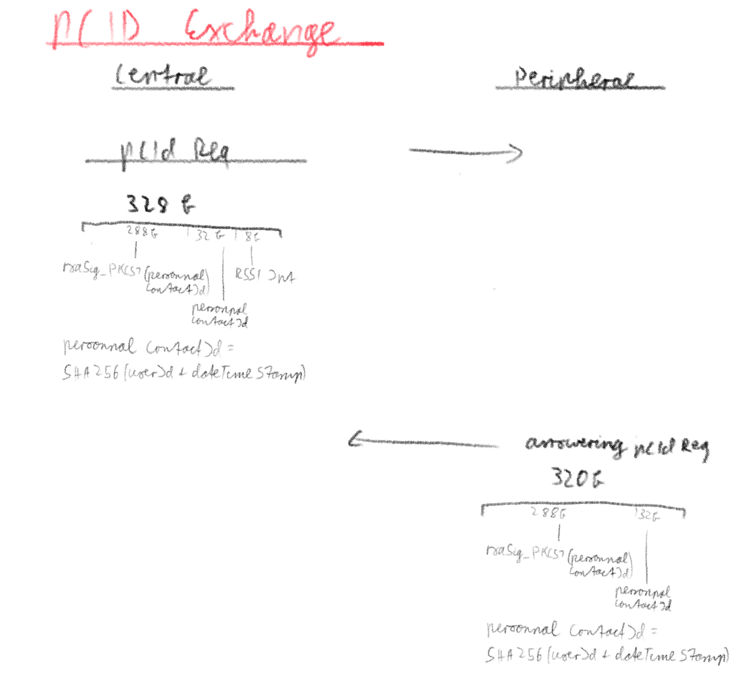 pCID Exchange
Central
Peripheral
pCId Req
328 B
288B 32 B 8B
rsaSig_PKCS7 (personnal
contactId)
RSSI Int
personnal
contactId
personnal ContactId =
SHA256(userId + dateTimeStamp)
answering pCId Req
320B
288B 32B
rsaSig_PKCS7 (personnal
contactId)
personnal
contactId
personnal ContactId =
SHA256(userId + dateTimeStamp)